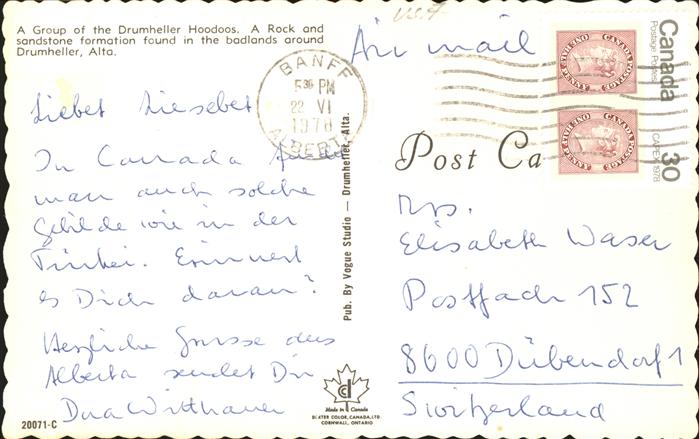 A Group of the Drumheller Hoodoos. A Rock and
sandstone formation found in the badlands around
Drumheller, Alta.
Air mail
BANFF
PM
22 VI
1978
ALBERTA
Canada
Postage Postes
30
CAPEX 1978
CANADA POSTAGE
ONE HALF PENNY
CANADA POSTAGE
ONE HALF PENNY
Liebes Liesebet
In Canada
man auch solche
Gebilde wie in der
Türkei. Erinnert
es Dich daran?
Herzliche Grüsse aus
Alberta sendet Dir
20071-C
Pub. By Vogue Studio — Drumheller, Alta.
Made in Canada
DEXTER COLOR, CANADA, LTD.
CORNWALL, ONTARIO
Post Ca
Mrs.
Elisabeth Waser
Postfach 152
8600 Dübendorf 1
Switzerland